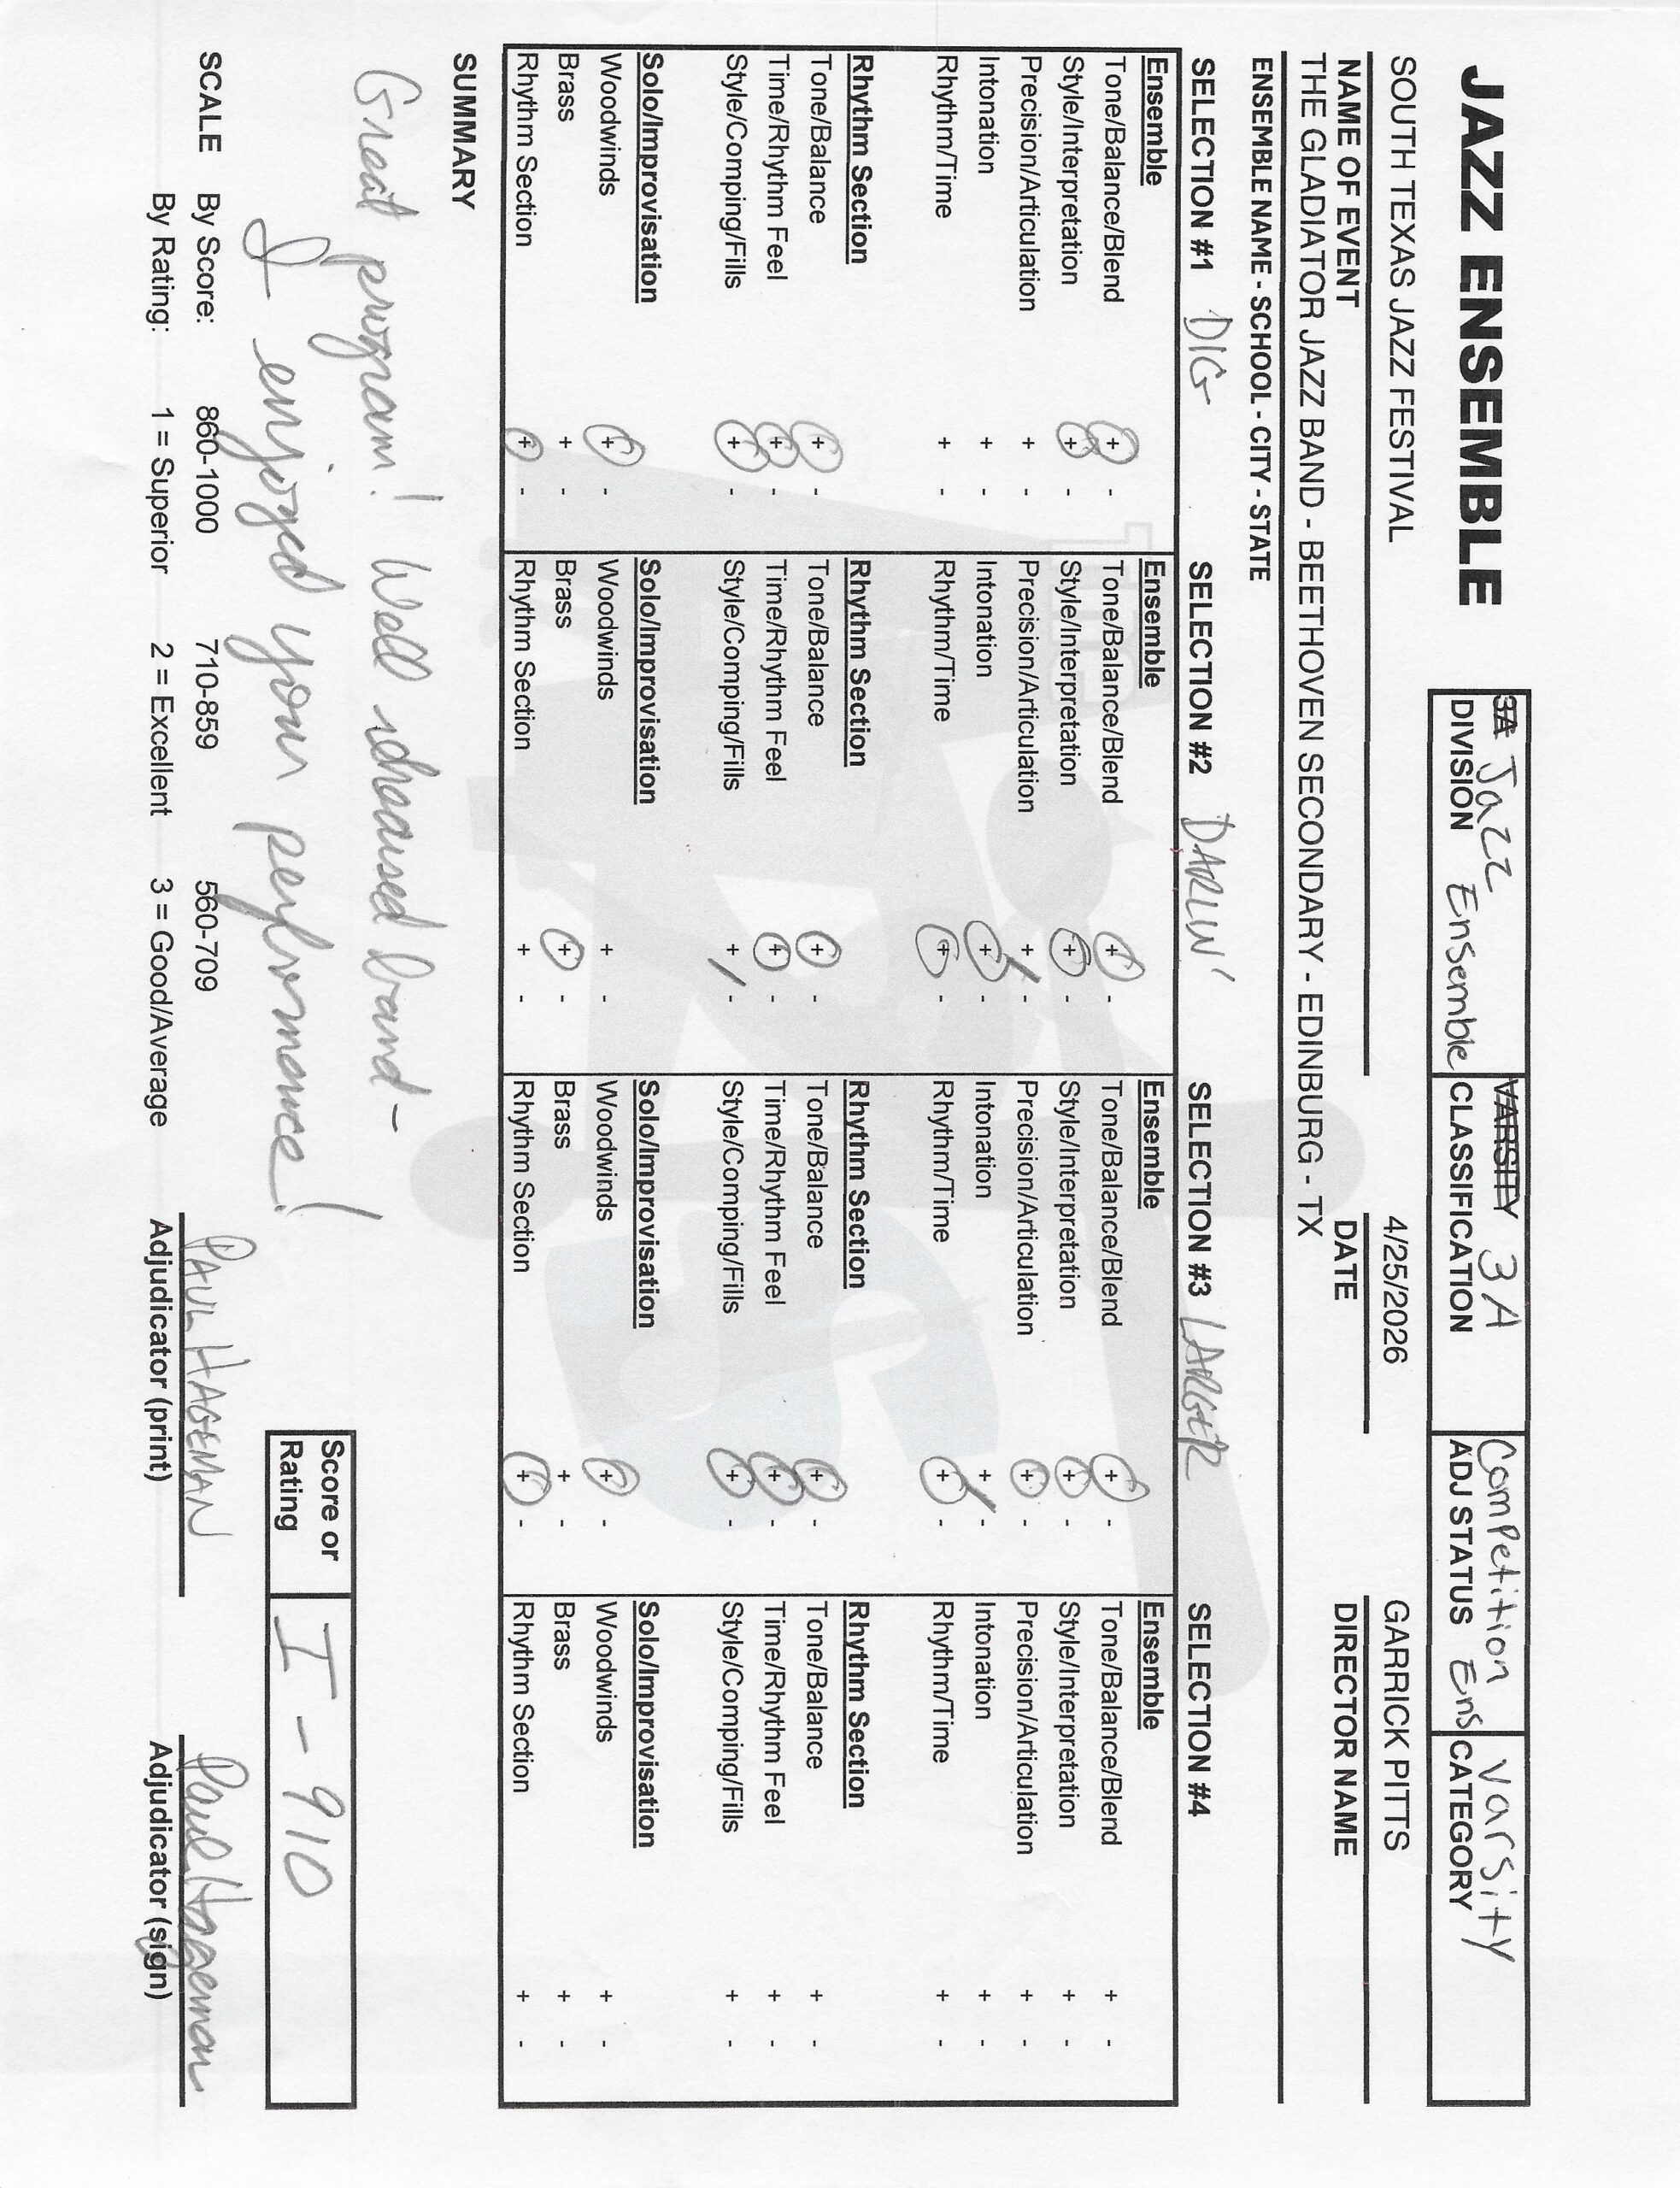 JAZZ ENSEMBLE
3A Jazz Ensemble VARSITY 3A Competition Ens Varsity
DIVISION CLASSIFICATION ADJ STATUS CATEGORY
SOUTH TEXAS JAZZ FESTIVAL 4/25/2026 GARRICK PITTS
NAME OF EVENT DATE DIRECTOR NAME
THE GLADIATOR JAZZ BAND - BEETHOVEN SECONDARY - EDINBURG - TX
ENSEMBLE NAME - SCHOOL - CITY - STATE
SELECTION #1 DIG SELECTION #2 DARLIN' SELECTION #3 LARGER SELECTION #4
Ensemble Ensemble Ensemble Ensemble
Tone/Balance/Blend + - Tone/Balance/Blend + - Tone/Balance/Blend + - Tone/Balance/Blend + -
Style/Interpretation + - Style/Interpretation + - Style/Interpretation + - Style/Interpretation + -
Precision/Articulation + - Precision/Articulation + - Precision/Articulation + - Precision/Articulation + -
Intonation + - Intonation + - Intonation + - Intonation + -
Rhythm/Time + - Rhythm/Time + - Rhythm/Time + - Rhythm/Time + -
Rhythm Section Rhythm Section Rhythm Section Rhythm Section
Tone/Balance + - Tone/Balance + - Tone/Balance + - Tone/Balance + -
Time/Rhythm Feel + - Time/Rhythm Feel + - Time/Rhythm Feel + - Time/Rhythm Feel + -
Style/Comping/Fills + - Style/Comping/Fills + - Style/Comping/Fills + - Style/Comping/Fills + -
Solo/Improvisation Solo/Improvisation Solo/Improvisation Solo/Improvisation
Woodwinds + - Woodwinds + - Woodwinds + - Woodwinds + -
Brass + - Brass + - Brass + - Brass + -
Rhythm Section + - Rhythm Section + - Rhythm Section + - Rhythm Section + -
SUMMARY
Great program! Well rehearsed band -
I enjoyed your performance!
Score or Rating I - 910
SCALE By Score: 860-1000 710-859 560-709 PAUL HAGEMAN Paul Hageman
By Rating: 1 = Superior 2 = Excellent 3 = Good/Average Adjudicator (print) Adjudicator (sign)